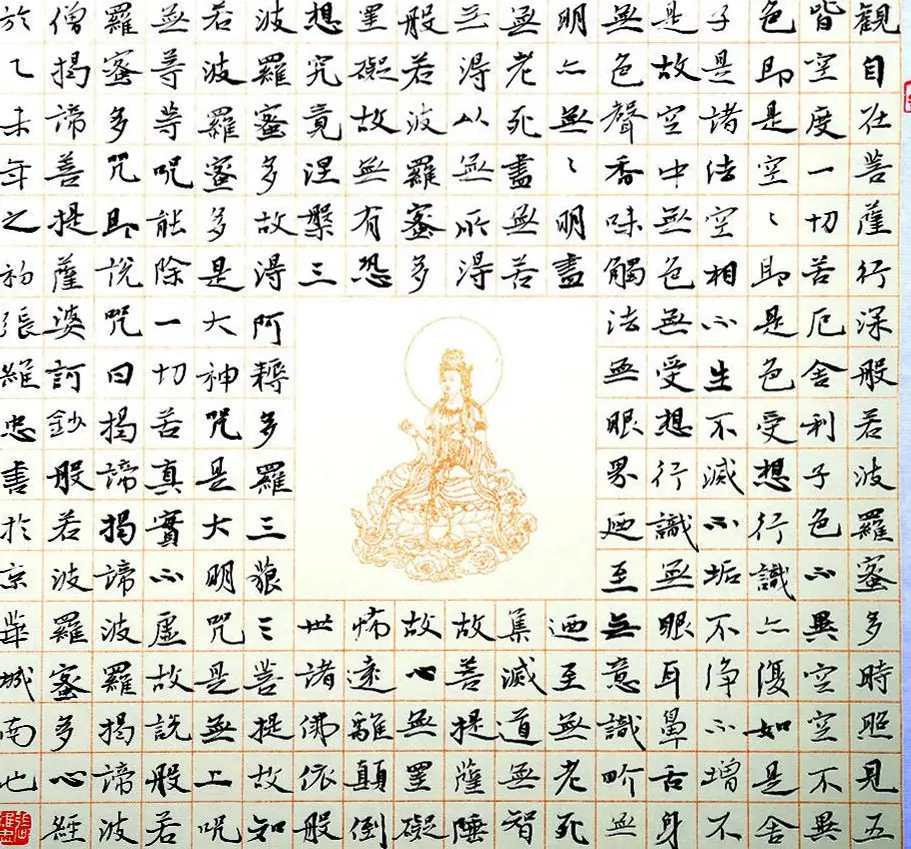 觀自在菩薩行深般若波羅蜜多時照見五
皆空度一切苦厄舍利子色不異空空不異
色即是空〻即是色受想行識亦復如是舍
子是諸法空相不生不滅不垢不淨不增不
是故空中無色無受想行識無眼耳鼻舌身
無色聲香味觸法無眼界迺至無意識畍無
明亦無〻明盡迺至無老死
無老死盡無苦集滅道無智
亦得以無所得故菩提薩埵
般若波羅蜜多故心無罣礙
罣礙故無有恐怖遠離顛倒
想究竟涅槃三世諸佛依般
波羅蜜多故得阿耨多羅三藐三菩提故知
若波羅蜜多是大神咒是大明咒是無上咒
無等等呪能除一切苦真實不虛故說般若
羅蜜多咒即說咒曰揭諦揭諦波羅揭諦波
僧揭諦菩提薩婆訶鈔般若波羅蜜多心經
於乙未年之初張維忠書於京華城南也